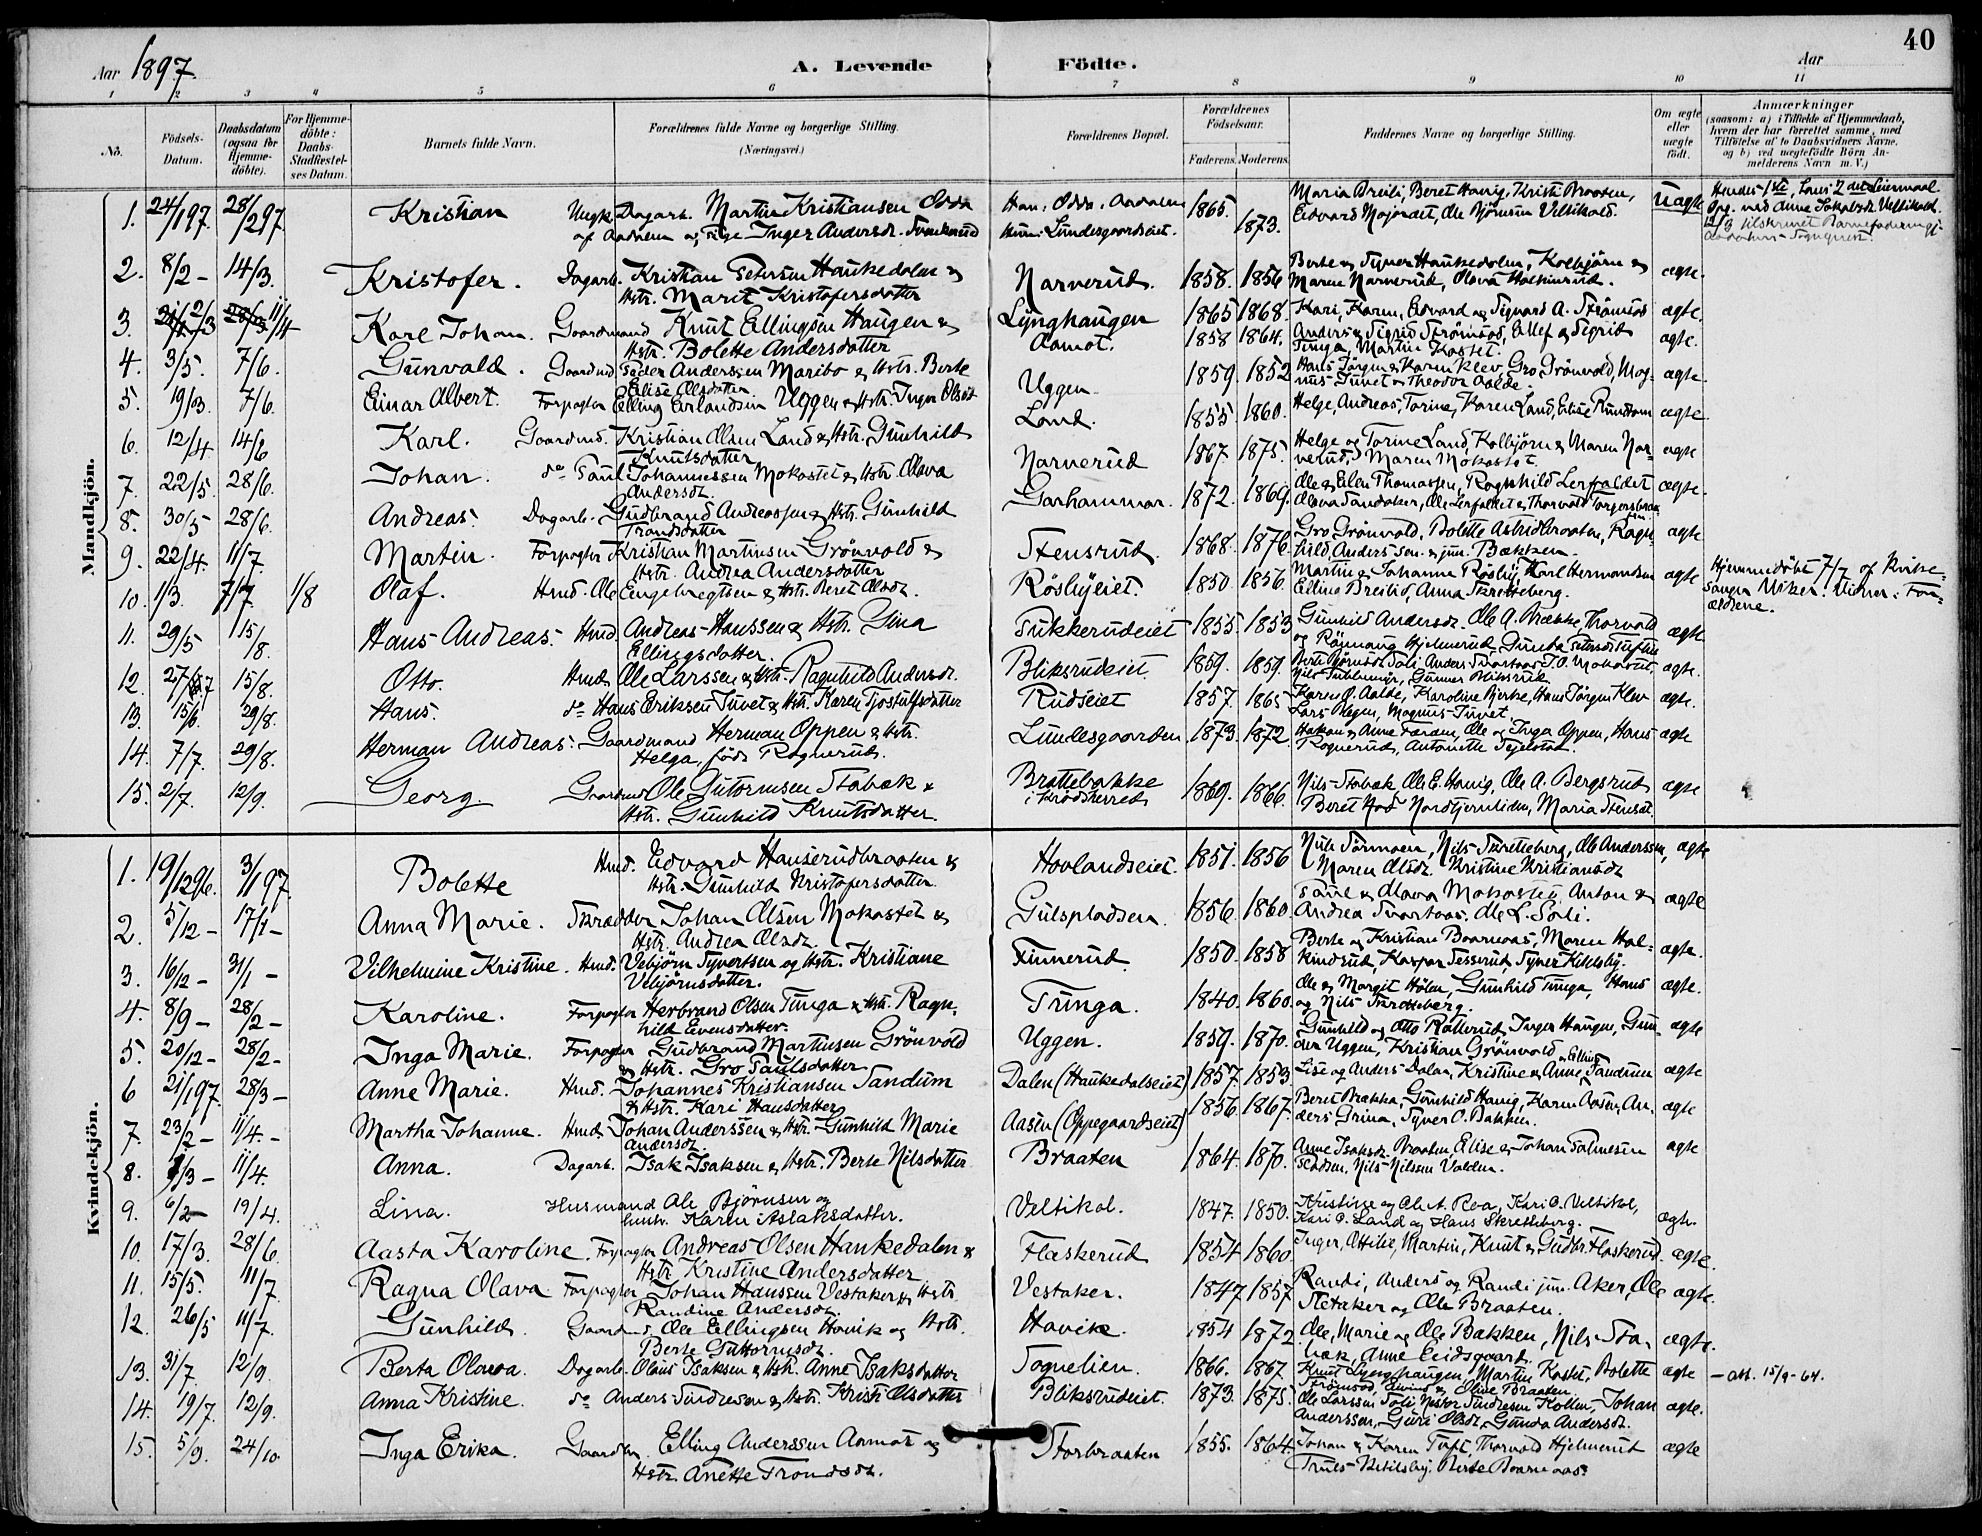 40
Aar 1897.
A. Levende Födte.
Aar
1 2 3 4 5 6 7 8 9 10 11
No. Födsels-Datum. Daabsdatum (ogsaa for Hjemme-döbte). For Hjemme-döbte: Daabs-Stadfæstel-ses Datum. Barnets fulde Navn. Forældrenes fulde Navne og borgerlige Stilling. (Næringsvei.) Forældrenes Bopæl. Forældrenes Födselsaar. Faderens. Moderens. Faddernes Navne og borgerlige Stilling. Om ægte eller uægte födt. Anmærkninger (saasom: a) i Tilfælde af Hjemmedaab, hvem der har forrettet samme, med Tilföielse af to Daabsvidners Navne, og b) ved uægtefödte Börn An-melderens Navn m. V.)
Mandkjön.
1. 24/1 97. 28/2 97. Kristian Ungk. Dagarb. Martin Kristiansen Odda Han: Odda, Aadalen 1865. Maria Breili, Beret Hanig, Kristi Braaten, uægte
af Aadalen og Pige Inger Andersdr. Hun: Lundesgaardseiet. 1873. Edvard Majordet, Ole Björnsen Veltikold.
2. 8/2 - 14/3. Kristofer. Dagarb. Kristian Petersen Haukedalen & Narverud. 1858. 1856 Berte og Syver Haukedalen, Kolbjörn & ægte.
Hstr. Marit Kristofersdatter Maren Narverud, Olava
3. 2/3 11/4 Karl Johan. Gaardmand Knut Ellingsen Haugen & Lynghaugen 1865 1868. Kari, Karen, Edvard og Sigvard A. Strömsod ægte.
Hstr. Bolette Andersdatter
4. 3/5. 7/6. Gunvald. Gaardmd Peder Anderssen Maribo & Hstr. Berte Aamot. 1858 1864. Anders & Sigrid Strömsod, Ellef & Sigrid ægte.
Elise Olsdatter Tunga, Martin Kastet.
5. 19/3. 7/6. Einar Albert. Forpagter Elling Erlandsen Uggen & Hstr. Inger Olsdt Uggen 1859. 1852 Hans Jörgen & Karen Klev, Gro Grönvold, Mag- ægte
nus Tuvet & Theodor Aalde.
6. 12/4 14/6 Karl. Gaardmd. Kristian Olsen Land & Hstr. Gunhild Land. 1855 1860. Helge, Andreas, Torine, Karen Land, Elise Rundtom ægte
Knutsdatter
7. 22/5. 28/6. Johan. do Paul Johannessen Mokastet & Hstr. Olava Narverud 1867. 1875. Helge og Torine Land, Kolbjörn & Maren Nar- ægte
Andersdr. verud, Maren Mokastet.
8. 30/5 28/6. Andreas. Dagarb. Gudbrand Andreassen & Hstr. Gunhild Garhammar. 1872. 1869. Ole & Elen Thomassen, Ragnhild Lerfaldet ægte.
Trondsdatter Olava Sandaker, Ole Lerfaldet & Thorvald
9. 22/4. 11/7. Martin. Forpagter Kristian Martinsen Grönvold & Stensrud. 1868. 1876. Gro Grönvold, Bolette Braaten, Ragn- ægte
Hstr. Andrea Andersdatter hild, Anders sen. & jun. Bækken.
10. 1/3. 7/7. 1/8 Olaf. Hmd. Ole Engebregtsen & Hstr. Beret Olsdr. Röslyeiet. 1850. 1856. Martin & Johanne Rösby, Karl Hermandsen ægte Hjemmedöbt 7/7 af Kirke-
Elling Breilid, Anna Skretteberg. sanger Viker. Vidner: For-
ældrene.
11. 29/5 15/8. Hans Andreas. Hmd Andreas Hanssen & Hstr. Lina Sukkerudeiet 1855. 1853 Gunhild Andersdr. Ole A. Brække, Thorvald ægte
Ellingsdatter. og Rönnaug Hjelmerud, Gunda Petersdr. Tuften
12. 27/7 15/8. Otto. Hmd. Ole Larssen & Hstr. Ragnhild Andersdr. Bliksrudeiet 1859. 1859. ægte.
13. 15/6 29/8. Hans. do Hans Eriksen Tuvet & Hstr. Karen Tjostulfsdatter Rudseiet 1857. 1865 Karen O. Aalde, Karoline Bjerke, Hans Jörgen Klev ægte.
Lars Hegen, Magnus Tuvet
14. 7/7. 29/8. Herman Andreas. Gaardmand Herman Oppen & Hstr. Lundesgaarden 1873. 1872. Haakon & Anne Færden, Ole og Inga Oppen, Hans ægte
Helga, föds Rognerud. Rognerud, Antonette
15. 2/7. 12/9. Georg. Gaardmd Ole Gutormsen Stabæk & Brattebakke 1869. 1866. Nils Stabæk, Ole E. Hanig, Ole A. Bergsrud ægte
Hstr. Gunhild Knutsdatter. i Krödsherred Beret Nordtjernlien, Maria Stensæt.
Kvindekjön.
1. 19/12 96. 3/1 97. Bolette Hmd. Edvard Hanserudbraaten & Hovlandseiet. 1851. 1856 Nils Skretteberg, Ole Anderssen, ægte
Hstr. Gunhild Kristofersdatter. Maren Olsdr. Kristine Kristiansdr
2. 5/12 - 17/1 - Anna Marie. Skrædder Johan Olsen Mokastet & Gulspladsen. 1856. 1860. Paul & Olava Mokastet, Anton & ægte
Hstr. Andrea Olsdr. Andrea Svartaas. Ole L. Soli.
3. 16/12 - 31/1 - Vilhelmine Kristine. Hmd. Vebjörn Syvertsen og Hstr. Kristiane Finnerud. 1850. 1858 Berte og Kristian Baarnaas, Maren Hal- ægte.
Vebjörnsdatter. kindsrud, Kaspar Tesserud, Syver Kittelsby.
4. 8/9 - 28/2 - Karoline. Forpagter Herbrand Olsen Tunga & Hstr. Ragn- Tunga. 1840. 1860. Ole & Margit Hölen, Gunhild Tunga, Hans ægte.
hild Evensdatter. og Nils Skretteberg.
5. 20/12 - 28/2 - Inga Marie. Forpagter Gudbrand Martinsen Grönvold Uggen. 1859. 1870. Gunhild og Otto Rotterud, Inger Haugen, Gun- ægte
& Hstr. Gro Paulsdatter der Uggen, Kristian Grönvold
6 21/1 97. 28/3 - Anne Marie. Hmd. Johannes Kristiansen Sandum Dalen (Haukedalseiet) 1857. 1853 Lise og Anders Dalen, Kristine & Anne & Elling Sandum ægte
& Hstr. Kari Hansdatter
7. 23/2 - 11/4. - Martha Johanne. Hmd. Johan Anderssen & Hstr. Gunhild Marie Aasen (Oppegaardseiet) 1856. 1867. Beret Brække, Gunhild Hanig, Karen Aasen, An- ægte
Andersdr. ders Grina, Syver O. Bakken.
8. 1/3 - 11/4. Anna. Dagarb. Isak Isaksen & Hstr. Berte Nilsdatter Braaten 1864. 1870. Anne Isaksdr. Braaten, Elise & Johan ægte
Nils Nilssen Valdern.
9. 6/2 - 19/4. Lina. Husmand Ole Björnsen og Veltikol. 1847. 1850. Kristine og Ole A. Roa, Kari O. Veltikol, ægte.
hustr. Karen Aslaksdatter. Kari O. Land og Hans Skretteberg.
10. 17/3. 28/6. Aasta Karoline. Forpagter Andreas Olsen Haukedalen & Flaskerud 1854 1860. Inger, Ottilie, Martin, Knut & Gudbr. Flaskerud. ægte.
Hstr. Kristine Andersdatter
11. 15/5. 11/7. Ragna Olava. Forpagter Johan Hanssen Vestaker & Hstr. Vestaker. 1847 1857. Randi, Anders og Randi jun. Aker, Ole ægte.
Randine Andersdr. Sletaker og Ole Braaten.
12. 26/5 11/7. Gunhild. Gaardmd. Ole Ellingsen Havik og Hstr. Havik. 1854 1872. Ole, Marie og Ole Bakken, Nils Sta- ægte.
Berte Guttormsdr. bæk, Anne Eidsgaard.
13. 31/7. 12/9. Berta Olava. Dagarb. Olaus Isaksen & Hstr. Anne Isaksdatter Sognelien. 1866. 1867. Knut Lynghaugen, Martin Kastet, Bolette ægte — att. 15/9-64.
Strömsod, Eivind & Oline Braaten.
14. 19/7. 12/9. Anna Kristine. do Anders Sindresen & Hstr. Kristi Olsdatter Bliksrudeiet. 1873. 1875. Ole Larssen Soli, Nestor Sindresen Kollen, Johan ægte.
Anderssen, Guri Olsdr. Gunda Andersdr.
15. 5/9. 24/10. Inga Erika. Gaardm. Elling Anderssen Aamot og Storbraaten 1855. 1864. Johan & Karen Tuft, Thorvald Hjelmerud ægte
Hstr. Anette Trondsdr. Truls Kittelsby, Berte Baarnaas.